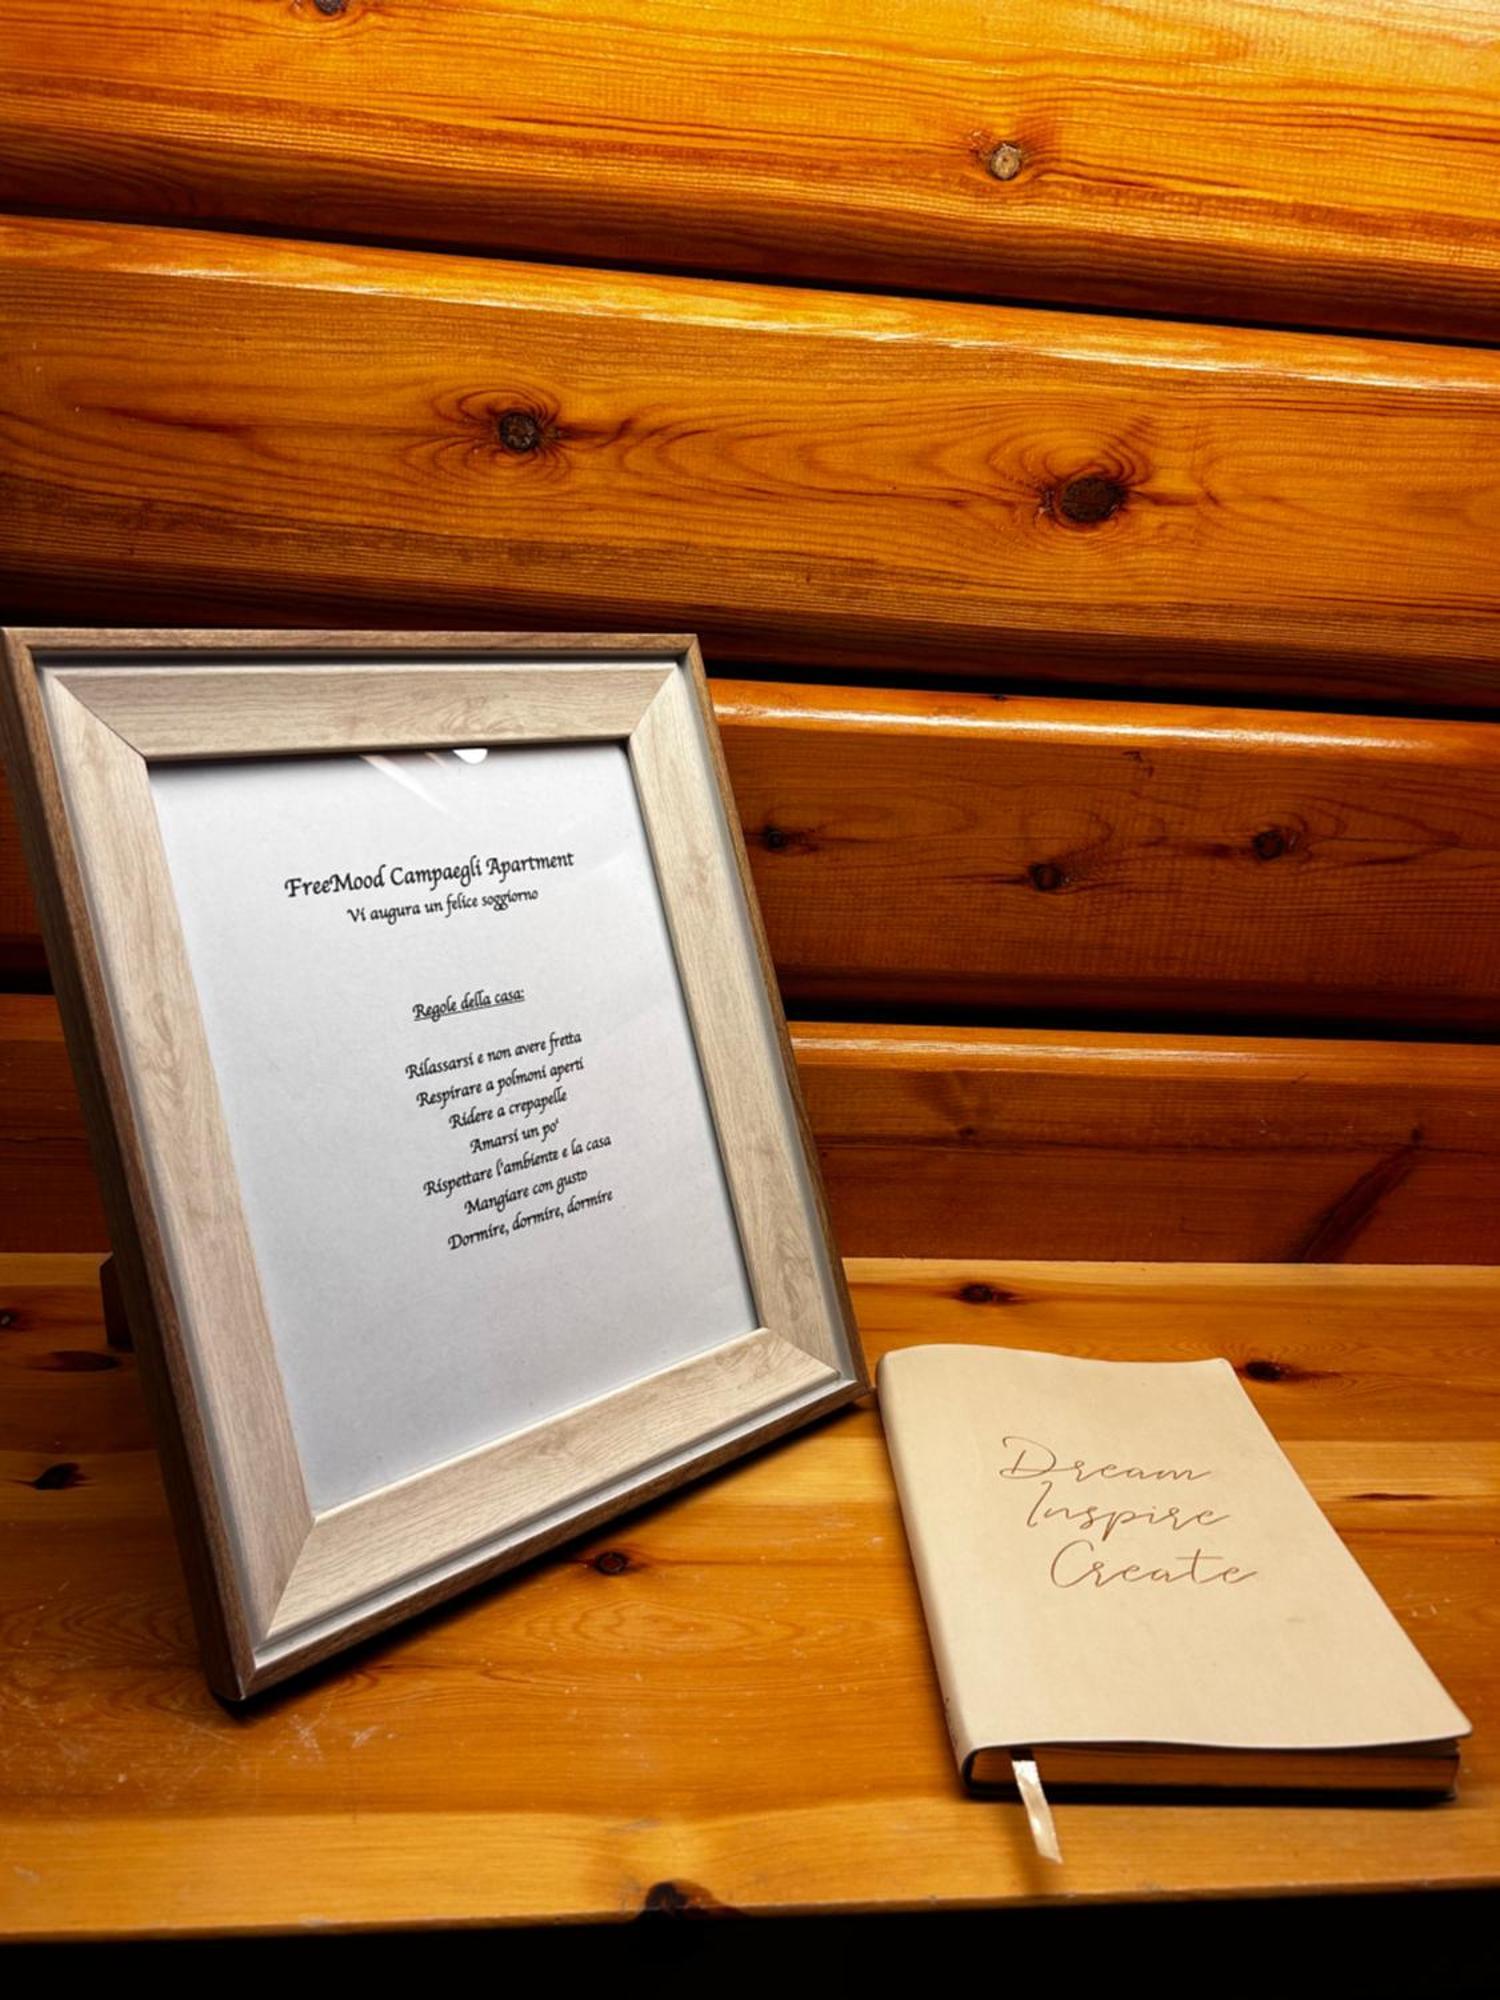 FreeMood Campaegli Apartment
Vi augura un felice soggiorno
Regole della casa:
Rilassarsi e non avere fretta
Respirare a polmoni aperti
Ridere a crepapelle
Amarsi un po'
Rispettare l'ambiente e la casa
Mangiare con gusto
Dormire, dormire, dormire
Dream
Inspire
Create